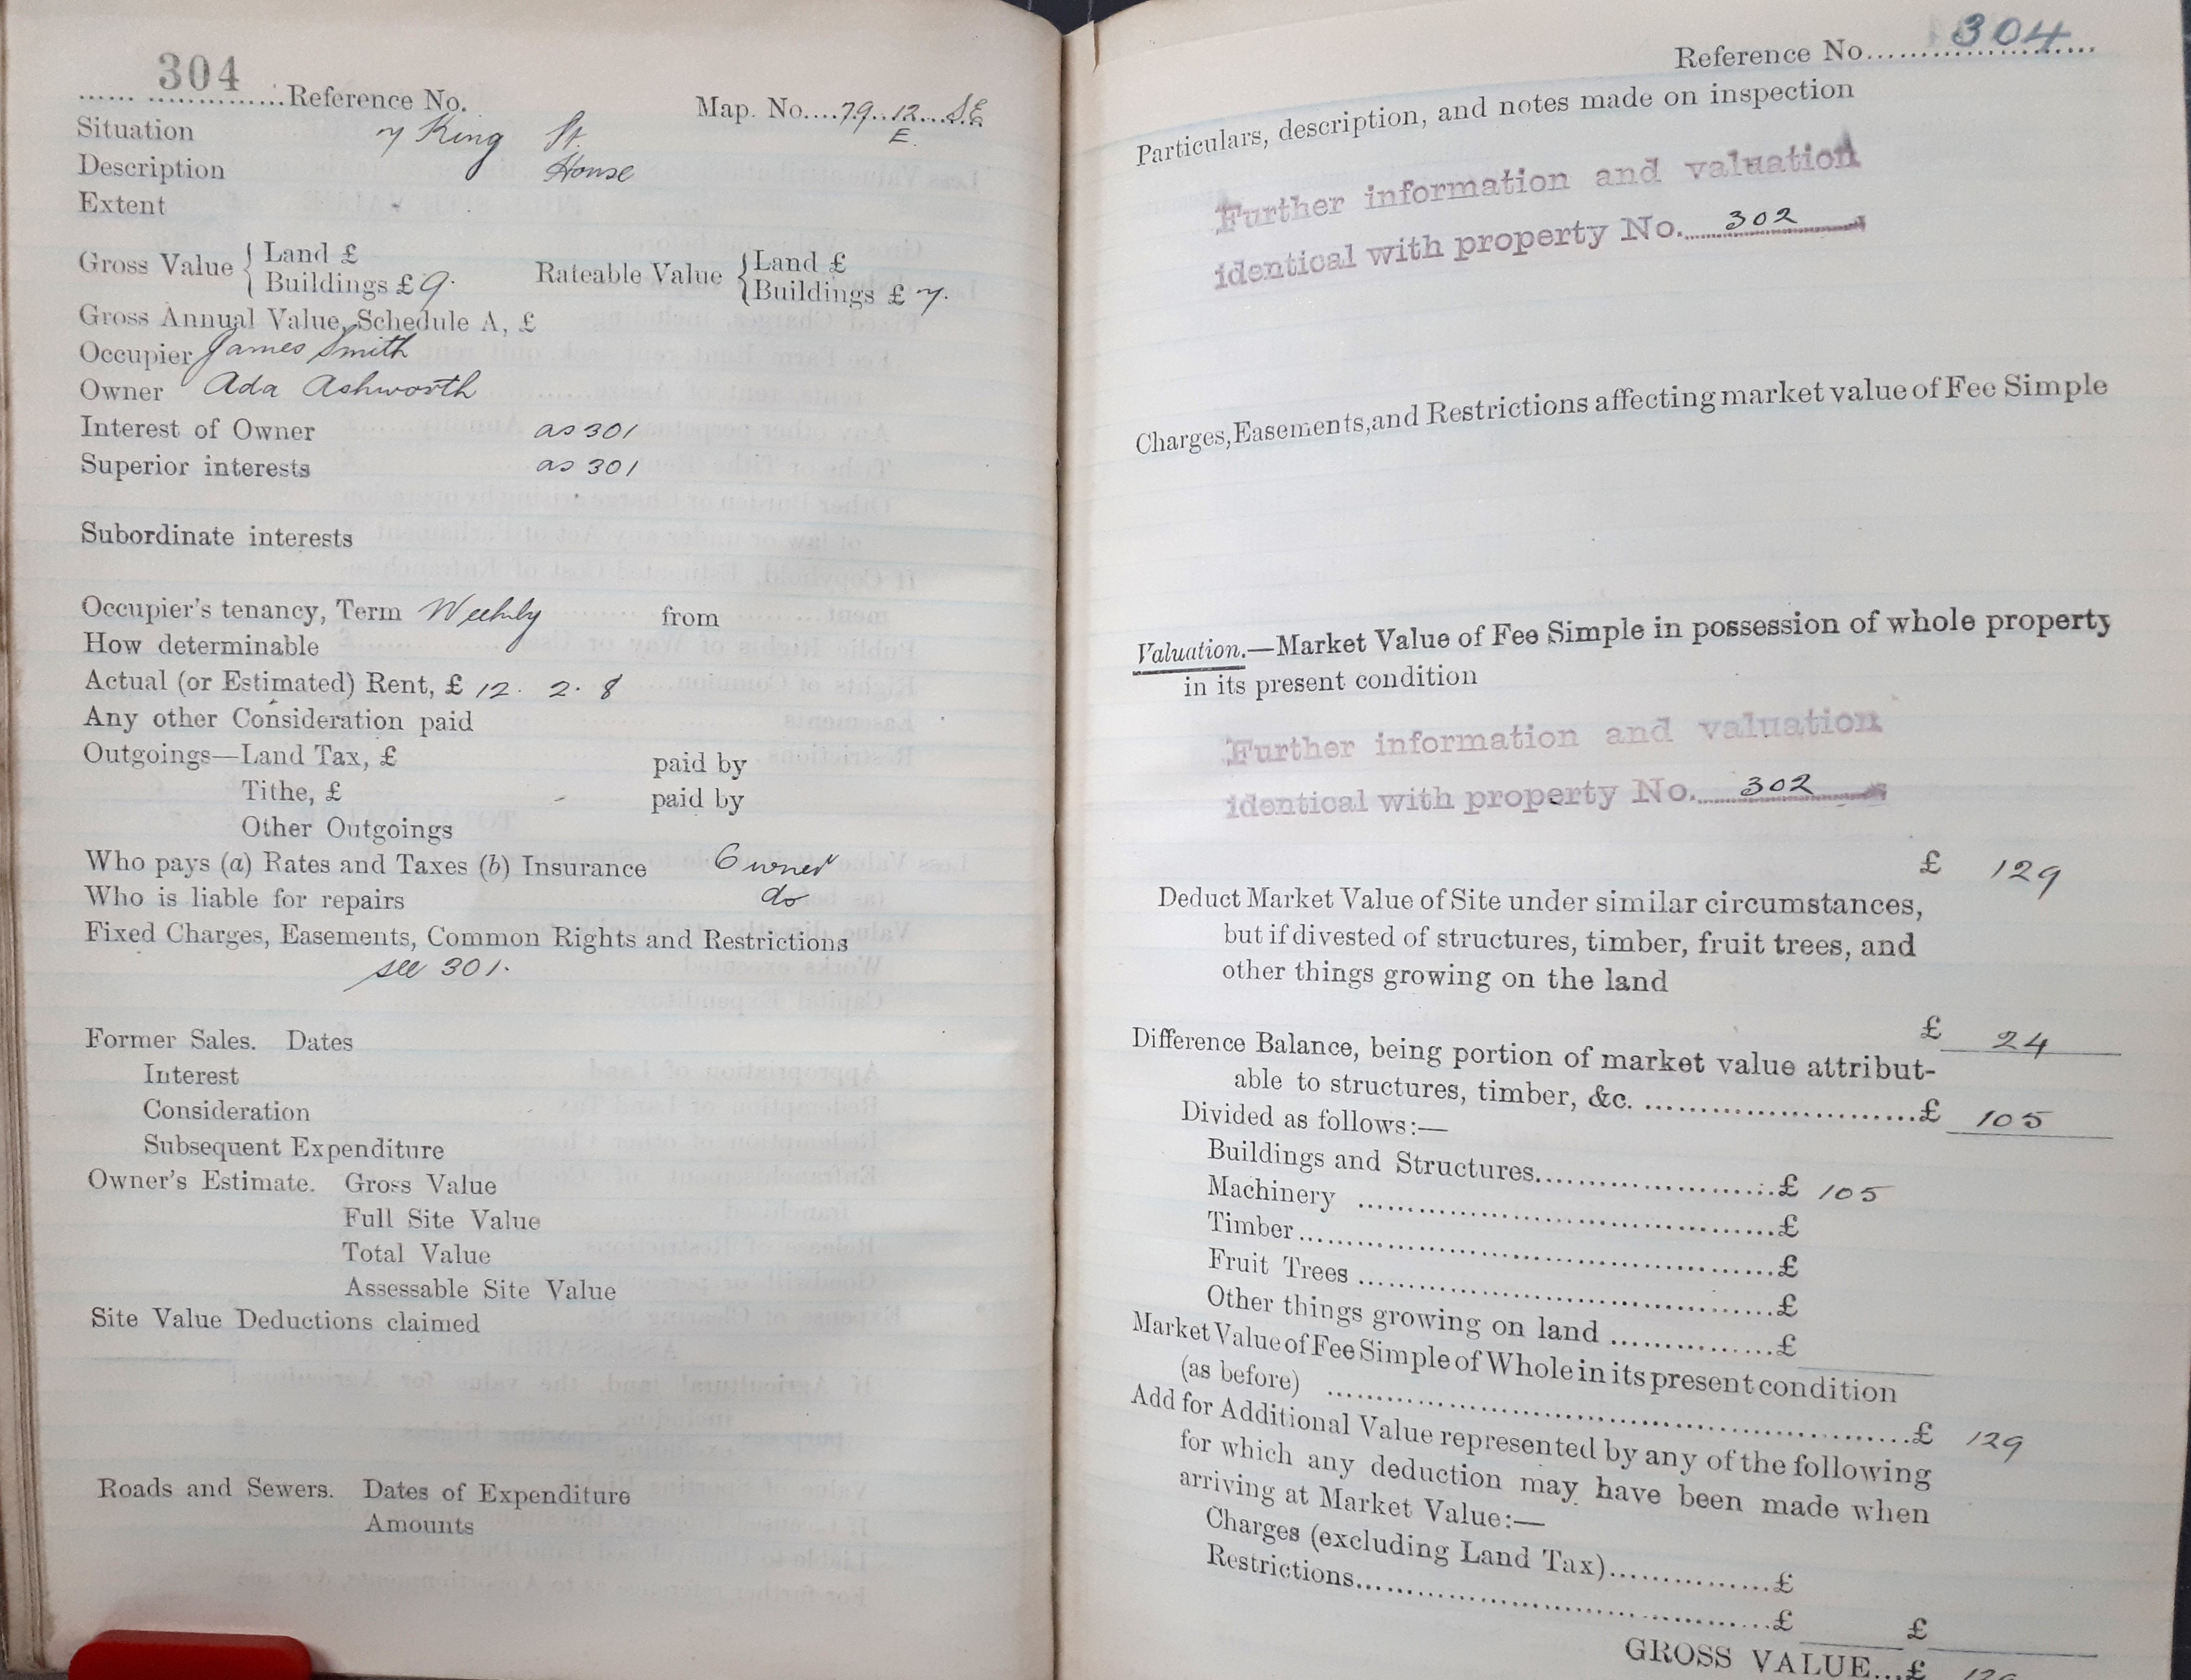 304
...... ...............Reference No.
Map. No....79..12...S.E.
E.
Situation 7 King St.
Description House
Extent
Gross Value { Land £
Buildings £ 9.
Rateable Value { Land £
Buildings £ 7.
Gross Annual Value, Schedule A, £
Occupier James Smith
Owner Ada Ashworth
Interest of Owner as 301
Superior interests as 301
Subordinate interests
Occupier's tenancy, Term Weekly from
How determinable
Actual (or Estimated) Rent, £ 12. 2. 8
Any other Consideration paid
Outgoings—Land Tax, £ paid by
Tithe, £ - paid by
Other Outgoings
Who pays (a) Rates and Taxes (b) Insurance Owner
Who is liable for repairs do
Fixed Charges, Easements, Common Rights and Restrictions
see 301.
Former Sales. Dates
Interest
Consideration
Subsequent Expenditure
Owner's Estimate. Gross Value
Full Site Value
Total Value
Assessable Site Value
Site Value Deductions claimed
Roads and Sewers. Dates of Expenditure
Amounts
Reference No. 304
Particulars, description, and notes made on inspection
Further information and valuation
identical with property No. 302
Charges, Easements, and Restrictions affecting market value of Fee Simple
Valuation.—Market Value of Fee Simple in possession of whole property
in its present condition
Further information and valuation
identical with property No. 302
£ 129
Deduct Market Value of Site under similar circumstances,
but if divested of structures, timber, fruit trees, and
other things growing on the land
£ 24
Difference Balance, being portion of market value attribut-
able to structures, timber, &c. ...........................£ 105
Divided as follows:—
Buildings and Structures.........................£ 105
Machinery .............................................£
Timber...................................................£
Fruit Trees .............................................£
Other things growing on land .................£
Market Value of Fee Simple of Whole in its present condition
(as before) ............................................................£ 129
Add for Additional Value represented by any of the following
for which any deduction may have been made when
arriving at Market Value:—
Charges (excluding Land Tax)................£
Restrictions............................................£
£
GROSS VALUE...£